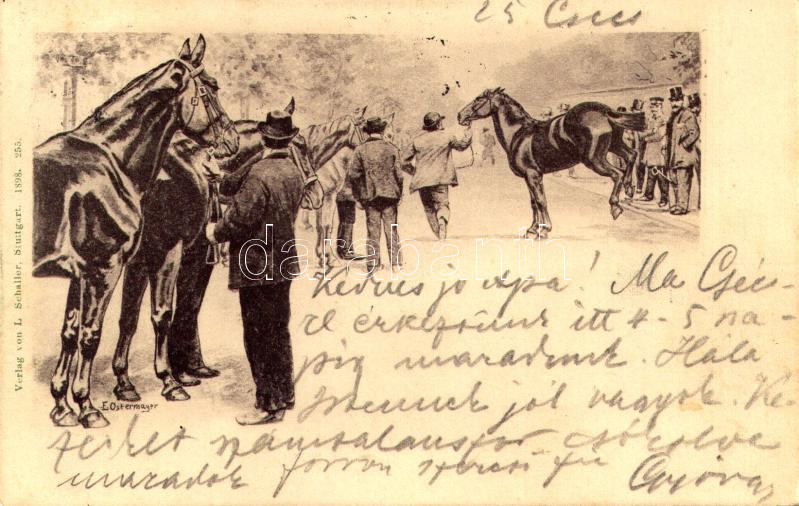 25 Csucs
Verlag von L. Schaller, Stuttgart. 1898. 255.
darabanth
E. Ostermayer
Kedves jó apa! Ma Géc-
el érkeztünk itt 4-5 na-
pig maradunk. Hála
Istennek jól vagyok. Ke-
zeiket számtalanszor csókolva
maradok forrón szerető fia